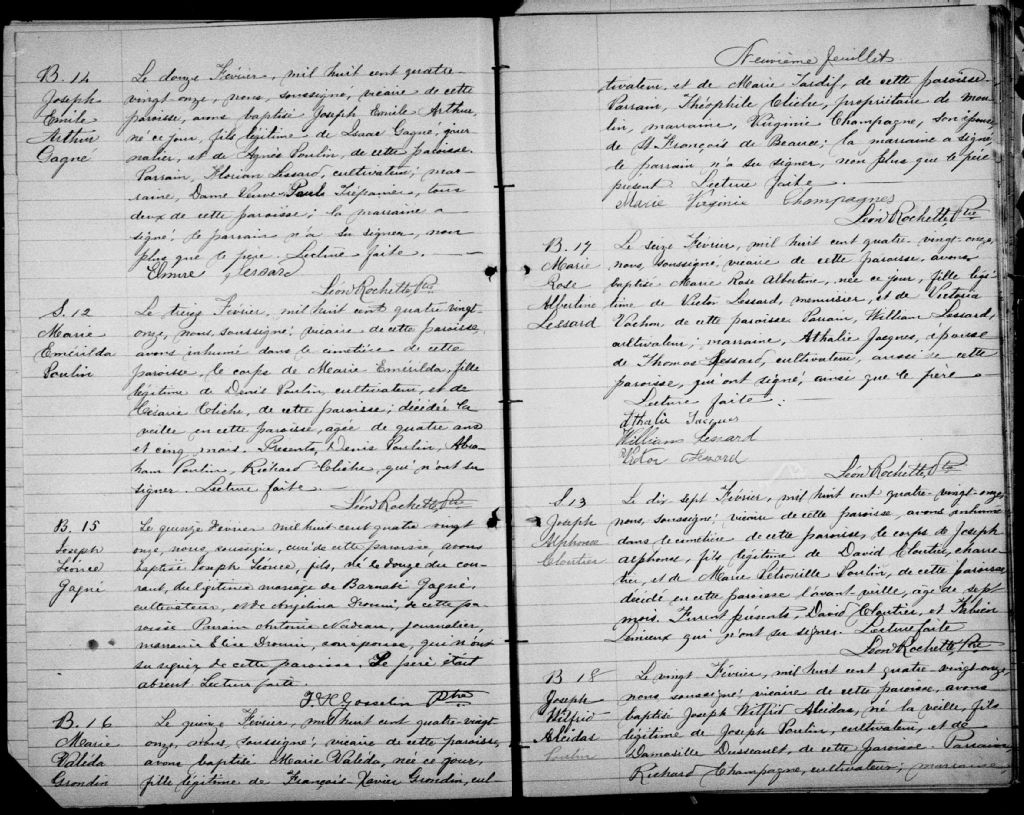 B. 14
Joseph
Emile
Arthur
Gagne
Le douze Février, mil huit cent quatre-
vingt onze, nous, soussigné, vicaire de cette
paroisse, avons baptisé Joseph Emile Arthur,
né ce jour, fils légitime de Isaac Gagné, jour
nalier, et de Agnès Poulin, de cette paroisse.
Parrain, Florian Lessard, cultivateur; mar-
raine, Dame Veuve Paul Trépanier, tous
deux de cette paroisse; la marraine a
signé, le parrain n'a su signer, non
plus que le père. Lecture faite.
Lessard
Léon Rochette Ptre
S. 12
Marie
Emérilda
Poulin
Le treize Février, mil huit cent quatre vingt-
onze, nous, soussigné, vicaire de cette paroisse,
avons inhumé dans le cimetière de cette
paroisse, le corps de Marie Emérilda, fille
légitime de Denis Poulin, cultivateur, et de
Césarie Cliche, de cette paroisse; décédée la
veille en cette paroisse, agée de quatre ans
et cinq mois. Présents, Denis Poulin, Abra-
ham Poulin, Richard Cliche, qui n'ont su
signer. Lecture faite.
Léon Rochette Ptre
B. 15
Joseph
Léonce
Gagné
Le quinze Fevrier mil huit cent quatre vingt
onze, nous, soussigné, curé de cette paroisse, avons
baptisé Joseph Léonce, fils, né le douze du cou-
rant, du légitime mariage de Barnabé Gagné,
cultivateur, et de Angélina Drouin, de cette pa
roisse Parrain Antoine Nadeau, journalier,
marraine Elise Drouin, son epouse, qui n'ont
su signer de cette paroisse. Le père était
absent Lecture faite.
Gosselin Ptre
B. 16
Marie
Valéda
Grondin
Le quinze Février, mil huit cent quatre-vingt-
onze, nous, soussigné, vicaire de cette paroisse,
avons baptisé Marie Valéda, née ce jour,
fille légitime de François-Xavier Grondin, cul
Neuvième feuillet
tivateur, et de Marie Tardif, de cette paroisse.
Parrain, Théophile Cliche, propriétaire de mou
lin, marraine, Virginie Champagne, son épouse,
de St François de Beauce; la marraine a signé,
le parrain n'a su signer, non plus que le père
présent Lecture faite.
Marie Virginie Champagnes
Léon Rochette Ptre
B. 17
Marie
Rose
Albertine
Lessard
Le seize Février, mil huit cent quatre-vingt-onze,
nous, soussigné, vicaire de cette paroisse, avons
baptisé Marie Rose Albertine, née ce jour, fille légi-
time de Victor Lessard, menuisier, et de Victoria
Vachon, de cette paroisse. Parrain, William Lessard,
cultivateur; marraine, Athalie Jacques, épouse
de Thomas Lessard, cultivateur, aussi de cette
paroisse, qui ont signé, ainsi que le père
Lecture faite.
Athalie Jacques
Williams Lessard
Victor Lessard
Léon Rochette Ptre
S. 13
Joseph
Alphonse
Cloutier
Le dix sept Février, mil huit cent quatre-vingt-onze,
nous, soussigné, vicaire de cette paroisse, avons inhumé
dans le cimetière de cette paroisse, le corps de Joseph
alphonse, fils légitime de David Cloutier, charre
tier, et de Marie Pétronille Poulin, de cette paroisse,
décédé en cette paroisse l'avant-veille, age de sept
mois. Furent présents, David Cloutier, et
Lemieux qui n'ont su signer. Lecture faite
Léon Rochette Ptre
B 18
Joseph
Wilfrid
Alcidas
Poulin
Le vingt Février, mil huit cent quatre-vingt-onze,
nous, soussigné, vicaire de cette paroisse, avons
baptisé Joseph Wilfrid Alcidas, né la veille, fils
légitime de Joseph Poulin, cultivateur, et de
Damasille Dusseault, de cette paroisse. Parrain,
Richard Champagne, cultivateur; marraine,